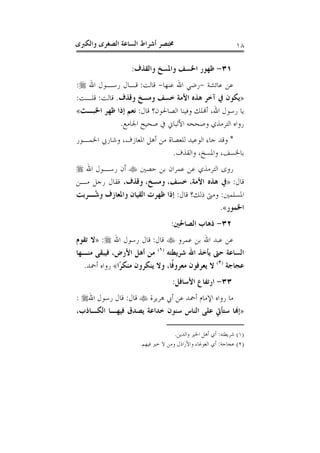 ١٨ مختصر أشراط الساعة الصغرى والكبرى
٣١- ظهور الخسف والمسخ والقذف:
عن عائشة -رضي الله عنها- قالت: قـــال رســـول الله ﷺ:
«يكون في آخر هذه الأمة خسف ومسخ وقذف. قالت: قلـــت:
يا رسول الله، أنهلك وفينا الصالحون؟ قال: نعم إذا ظهر الخبـــث»
رواه الترمذي وصححه الألباني في صحيح الجامع.
* وقد جاء الوعيد للعصاة من أهل المعازف، وشاربي الخمـــور
بالخسف، والمسخ، والقذف.
روى الترمذي عن عمران بن حصين ﷺ أن رســـول الله ﷺ
قال: «في هذه الأمة، خسف، ومسخ، وقذف، فقال رجل مـــن
المسلمين: ومتى ذلك؟ قال: إذا ظهرت القيان والمعازف وشُـــربت
الخمور».
٣٢- ذهاب الصالحين:
عن عبد الله بن عمرو ﷺ قال: قال رسول الله ﷺ: «لا تقوم
الساعة حتى يأخذ الله شريطته (١) من أهل الأرض، فيبقى منـــها
عجاجة (٢) لا يعرفون معروفًا، ولا ينكرون منكرًا» رواه أحمد.
٣٣- ارتفاع الأسافل:
ما رواه الإمام أحمد عن أبي هريرة ﷺ قال: قال رسول الله ﷺ:
«إنها ستأتي على الناس سنون خداعة يصدق فيهـــا الكـــاذب،
(١) شريطته: أي أهل الخير والدين.
(٢) عجاجة: أي الغوغاء والأراذل ومن لا خير فيهم.